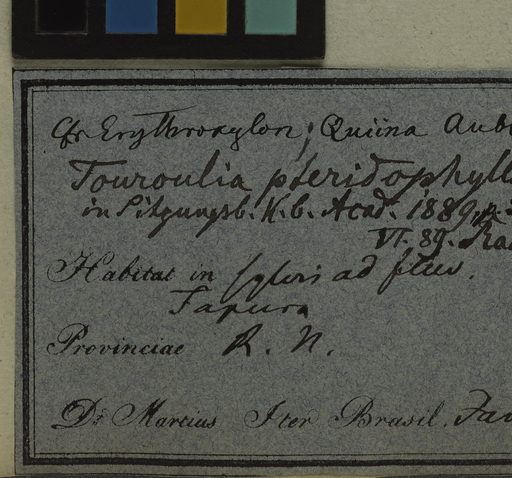 Cfr Erythroxylon; Quiina Aub
Touroulia pteridophylla
in Sitzungsb. K. b. Acad. 1889,
VI. 89. Rad
Habitat in sylvis ad fluv.
Japura
Provinciae R. N.
Dr. Martius Iter Brasil.